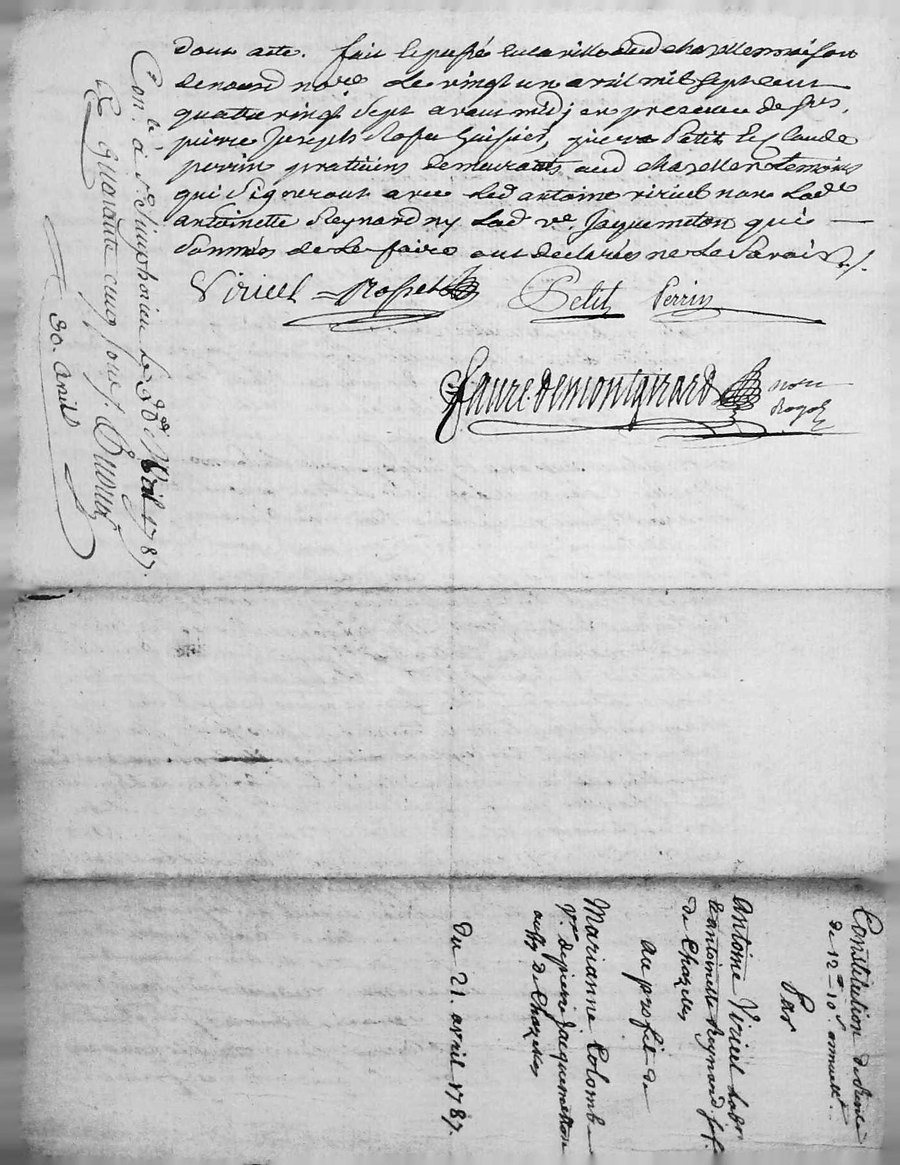 dont acte. fait et passé en la ville dud chazelle maison
de nousd no.re le vingt un avril mil sept cent
quatre vingt sept avant midj en presence de srs.
pierre Joseph huissier, pierre Petit et Claude
perrin praticiens demeurants aud chazelle temoins
qui signeront avec led antoine viricel non lad.e
antoinette Reynard ny lad. ve. Jaquemeton qui
sommés de le faire ont declarés ne le savoir ./.
Viricel Petit Perrin
faure demontgirard nore
Royal
Con.lé à st. Simphorien le 30 avril 1787.
R quarante cinq sous
30. avril
Constitution de Rente
de 12 lt 10 s annuellt.
Par
Antoine Viricel labr
& antoinette Reynard sa f.
de Chazelles
au profit de
Marianne Colombe
Ve. de pierre Jaquemetton
aussy de Chazelles
du 21 avril 1787.